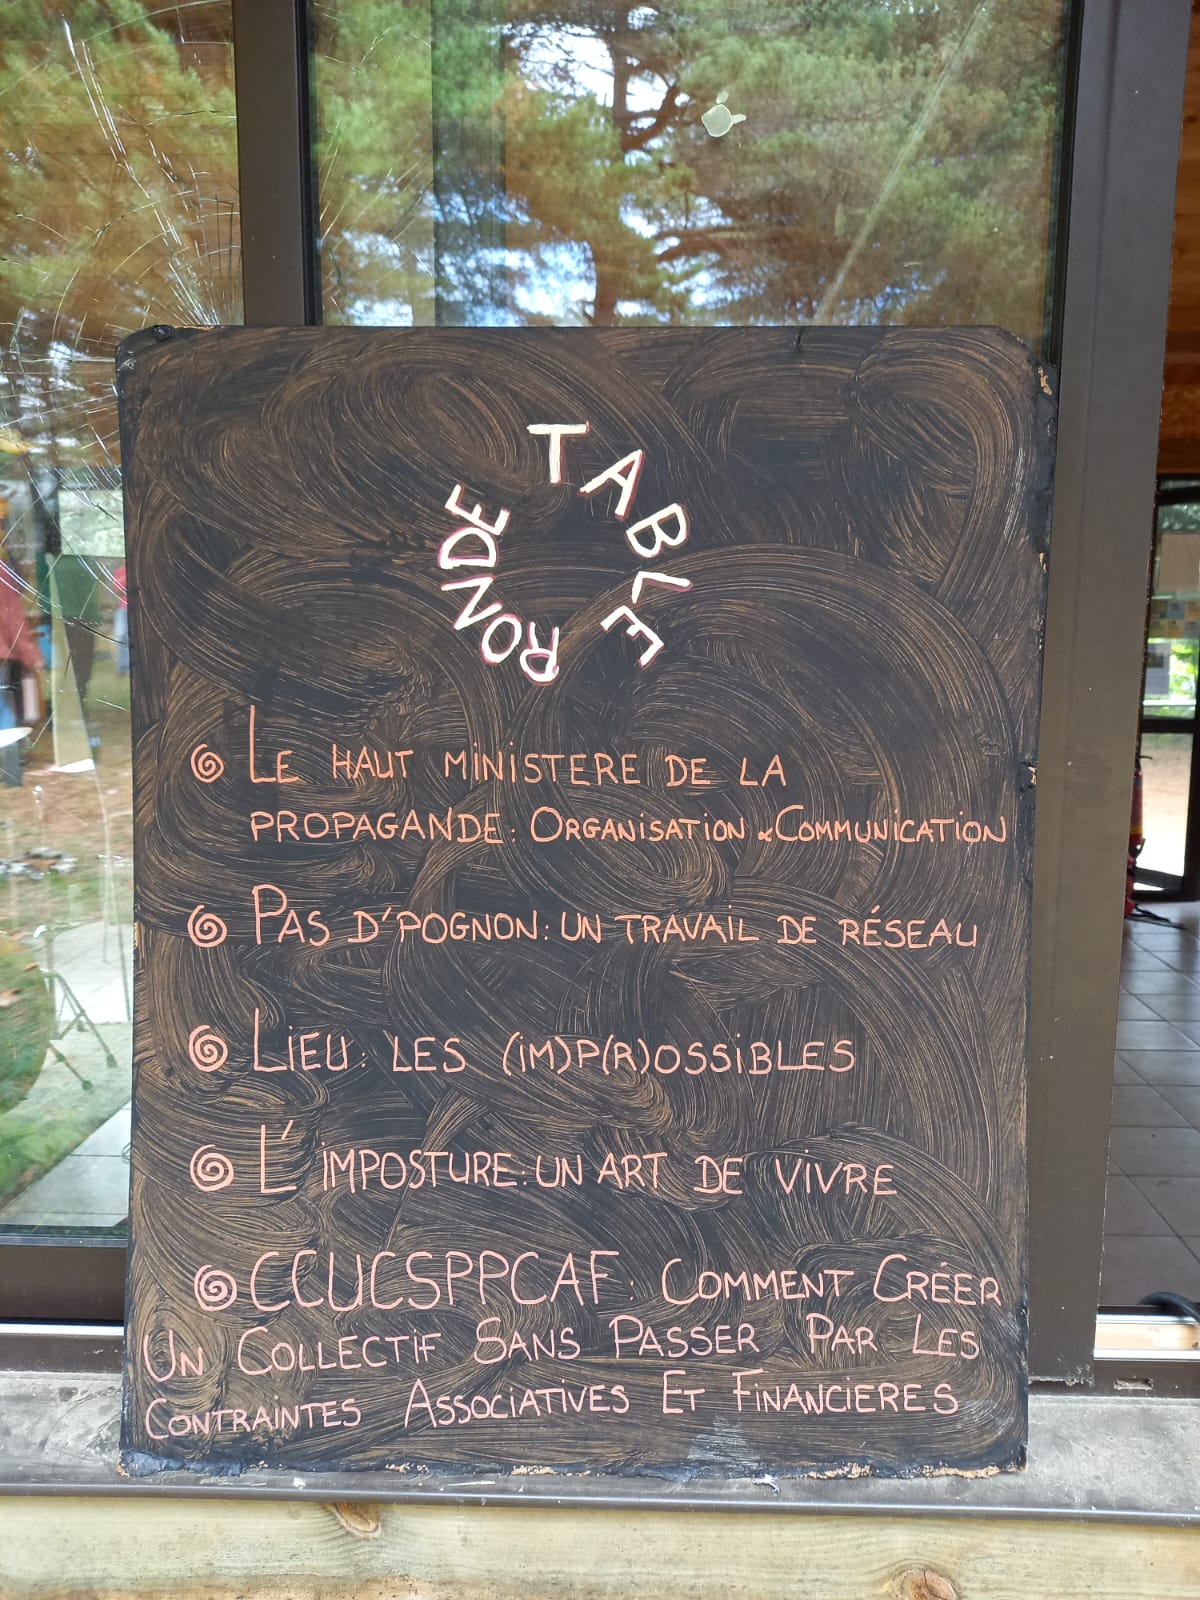 TABLE RONDE
LE HAUT MINISTERE DE LA
PROPAGANDE: ORGANISATION & COMMUNICATION
PAS D'POGNON: UN TRAVAIL DE RÉSEAU
LIEU: LES (IM)P(R)OSSIBLES
L'IMPOSTURE: UN ART DE VIVRE
CCUCSPPCAF: COMMENT CRÉER
UN COLLECTIF SANS PASSER PAR LES
CONTRAINTES ASSOCIATIVES ET FINANCIERES